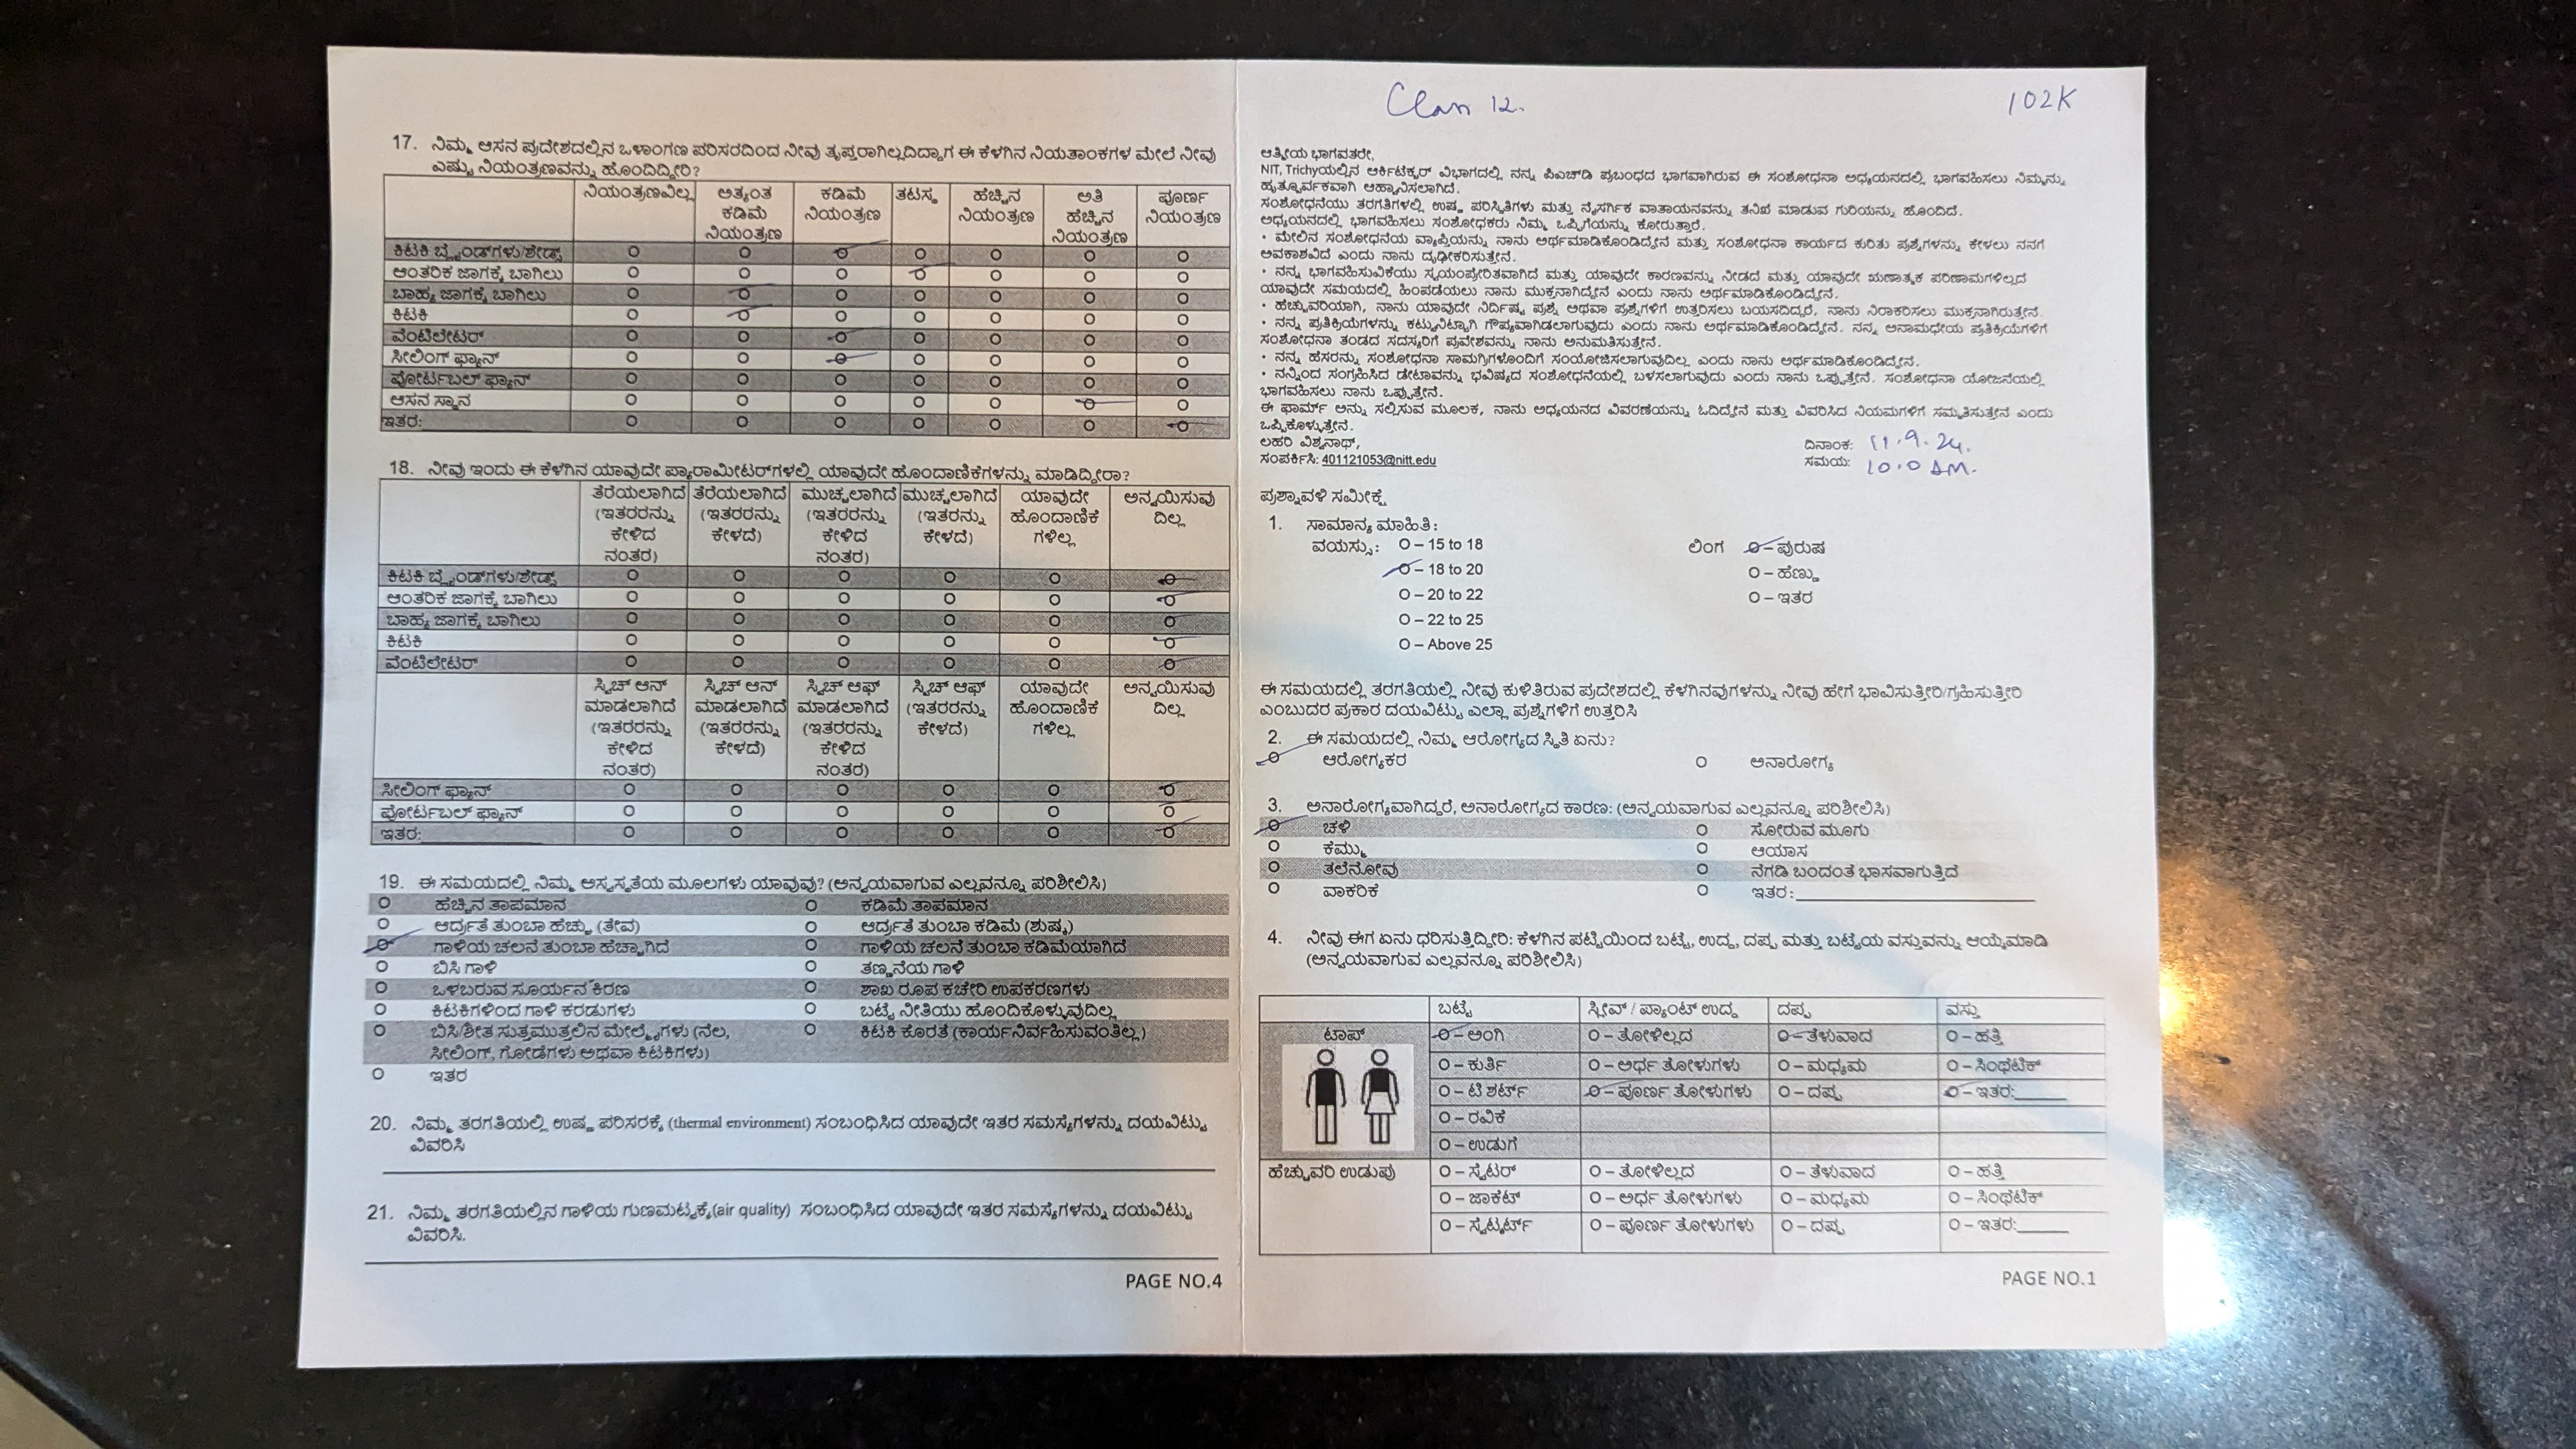 17. ನಿಮ್ಮ ಆಸನ ಪ್ರದೇಶದಲ್ಲಿನ ಒಳಾಂಗಣ ಪರಿಸರದಿಂದ ನೀವು ತೃಪ್ತರಾಗಿಲ್ಲದಿದ್ದಾಗ ಈ ಕೆಳಗಿನ ನಿಯತಾಂಕಗಳ ಮೇಲೆ ನೀವು
ಎಷ್ಟು ನಿಯಂತ್ರಣವನ್ನು ಹೊಂದಿದ್ದೀರಿ?
ನಿಯಂತ್ರಣವಿಲ್ಲ ಅತ್ಯಂತ ಕಡಿಮೆ ನಿಯಂತ್ರಣ ಕಡಿಮೆ ನಿಯಂತ್ರಣ ತಟಸ್ಥ ಹೆಚ್ಚಿನ ನಿಯಂತ್ರಣ ಅತಿ ಹೆಚ್ಚಿನ ನಿಯಂತ್ರಣ ಪೂರ್ಣ ನಿಯಂತ್ರಣ
ಕಿಟಕಿ ಬ್ಲೈಂಡ್‌ಗಳು/ಶೇಡ್ಸ್ O O O O O O O
ಆಂತರಿಕ ಜಾಗಕ್ಕೆ ಬಾಗಿಲು O O O O O O O
ಬಾಹ್ಯ ಜಾಗಕ್ಕೆ ಬಾಗಿಲು O O O O O O O
ಕಿಟಕಿ O O O O O O O
ವೆಂಟಿಲೇಟರ್ O O O O O O O
ಸೀಲಿಂಗ್ ಫ್ಯಾನ್ O O O O O O O
ಪೋರ್ಟಬಲ್ ಫ್ಯಾನ್ O O O O O O O
ಆಸನ ಸ್ಥಾನ O O O O O O O
ಇತರ: O O O O O O O
18. ನೀವು ಇಂದು ಈ ಕೆಳಗಿನ ಯಾವುದೇ ಪ್ಯಾರಾಮೀಟರ್‌ಗಳಲ್ಲಿ ಯಾವುದೇ ಹೊಂದಾಣಿಕೆಗಳನ್ನು ಮಾಡಿದ್ದೀರಾ?
ತೆರೆಯಲಾಗಿದೆ (ಇತರರನ್ನು ಕೇಳಿದ ನಂತರ) ತೆರೆಯಲಾಗಿದೆ (ಇತರರನ್ನು ಕೇಳದೆ) ಮುಚ್ಚಲಾಗಿದೆ (ಇತರರನ್ನು ಕೇಳಿದ ನಂತರ) ಮುಚ್ಚಲಾಗಿದೆ (ಇತರನ್ನು ಕೇಳದೆ) ಯಾವುದೇ ಹೊಂದಾಣಿಕೆ ಗಳಿಲ್ಲ ಅನ್ವಯಿಸುವು ದಿಲ್ಲ
ಕಿಟಕಿ ಬ್ಲೈಂಡ್‌ಗಳು/ಶೇಡ್ಸ್ O O O O O O
ಆಂತರಿಕ ಜಾಗಕ್ಕೆ ಬಾಗಿಲು O O O O O O
ಬಾಹ್ಯ ಜಾಗಕ್ಕೆ ಬಾಗಿಲು O O O O O O
ಕಿಟಕಿ O O O O O O
ವೆಂಟಿಲೇಟರ್ O O O O O O
ಸ್ವಿಚ್ ಆನ್ ಮಾಡಲಾಗಿದೆ (ಇತರರನ್ನು ಕೇಳಿದ ನಂತರ) ಸ್ವಿಚ್ ಆನ್ ಮಾಡಲಾಗಿದೆ (ಇತರರನ್ನು ಕೇಳದೆ) ಸ್ವಿಚ್ ಆಫ್ ಮಾಡಲಾಗಿದೆ (ಇತರರನ್ನು ಕೇಳಿದ ನಂತರ) ಸ್ವಿಚ್ ಆಫ್ (ಇತರರನ್ನು ಕೇಳದೆ) ಯಾವುದೇ ಹೊಂದಾಣಿಕೆ ಗಳಿಲ್ಲ ಅನ್ವಯಿಸುವು ದಿಲ್ಲ
ಸೀಲಿಂಗ್ ಫ್ಯಾನ್ O O O O O O
ಪೋರ್ಟಬಲ್ ಫ್ಯಾನ್ O O O O O O
ಇತರ: O O O O O O
19. ಈ ಸಮಯದಲ್ಲಿ ನಿಮ್ಮ ಅಸ್ವಸ್ಥತೆಯ ಮೂಲಗಳು ಯಾವುವು? (ಅನ್ವಯವಾಗುವ ಎಲ್ಲವನ್ನೂ ಪರಿಶೀಲಿಸಿ)
O ಹೆಚ್ಚಿನ ತಾಪಮಾನ O ಕಡಿಮೆ ತಾಪಮಾನ
O ಆರ್ದ್ರತೆ ತುಂಬಾ ಹೆಚ್ಚು (ತೇವ) O ಆರ್ದ್ರತೆ ತುಂಬಾ ಕಡಿಮೆ (ಶುಷ್ಕ)
O ಗಾಳಿಯ ಚಲನೆ ತುಂಬಾ ಹೆಚ್ಚಾಗಿದೆ O ಗಾಳಿಯ ಚಲನೆ ತುಂಬಾ ಕಡಿಮೆಯಾಗಿದೆ
O ಬಿಸಿ ಗಾಳಿ O ತಣ್ಣನೆಯ ಗಾಳಿ
O ಒಳಬರುವ ಸೂರ್ಯನ ಕಿರಣ O ಶಾಖ ರೂಪ ಕಚೇರಿ ಉಪಕರಣಗಳು
O ಕಿಟಕಿಗಳಿಂದ ಗಾಳಿ ಕರಡುಗಳು O ಬಟ್ಟೆ ನೀತಿಯು ಹೊಂದಿಕೊಳ್ಳುವುದಿಲ್ಲ
O ಬಿಸಿ/ಶೀತ ಸುತ್ತಮುತ್ತಲಿನ ಮೇಲ್ಮೈಗಳು (ನೆಲ, O ಕಿಟಕಿ ಕೊರತೆ (ಕಾರ್ಯನಿರ್ವಹಿಸುವಂತಿಲ್ಲ)
ಸೀಲಿಂಗ್, ಗೋಡೆಗಳು ಅಥವಾ ಕಿಟಕಿಗಳು)
O ಇತರ
20. ನಿಮ್ಮ ತರಗತಿಯಲ್ಲಿ ಉಷ್ಣ ಪರಿಸರಕ್ಕೆ (thermal environment) ಸಂಬಂಧಿಸಿದ ಯಾವುದೇ ಇತರ ಸಮಸ್ಯೆಗಳನ್ನು ದಯವಿಟ್ಟು
ವಿವರಿಸಿ
21. ನಿಮ್ಮ ತರಗತಿಯಲ್ಲಿನ ಗಾಳಿಯ ಗುಣಮಟ್ಟಕ್ಕೆ(air quality) ಸಂಬಂಧಿಸಿದ ಯಾವುದೇ ಇತರ ಸಮಸ್ಯೆಗಳನ್ನು ದಯವಿಟ್ಟು
ವಿವರಿಸಿ.
PAGE NO.4
Class 12. 102K
ಆತ್ಮೀಯ ಭಾಗವತರೇ,
NIT, Trichyಯಲ್ಲಿನ ಆರ್ಕಿಟೆಕ್ಚರ್ ವಿಭಾಗದಲ್ಲಿ ನನ್ನ ಪಿಎಚ್‌ಡಿ ಪ್ರಬಂಧದ ಭಾಗವಾಗಿರುವ ಈ ಸಂಶೋಧನಾ ಅಧ್ಯಯನದಲ್ಲಿ ಭಾಗವಹಿಸಲು ನಿಮ್ಮನ್ನು
ಹೃತ್ಪೂರ್ವಕವಾಗಿ ಆಹ್ವಾನಿಸಲಾಗಿದೆ.
ಸಂಶೋಧನೆಯು ತರಗತಿಗಳಲ್ಲಿ ಉಷ್ಣ ಪರಿಸ್ಥಿತಿಗಳು ಮತ್ತು ನೈಸರ್ಗಿಕ ವಾತಾಯನವನ್ನು ತನಿಖೆ ಮಾಡುವ ಗುರಿಯನ್ನು ಹೊಂದಿದೆ.
ಅಧ್ಯಯನದಲ್ಲಿ ಭಾಗವಹಿಸಲು ಸಂಶೋಧಕರು ನಿಮ್ಮ ಒಪ್ಪಿಗೆಯನ್ನು ಕೋರುತ್ತಾರೆ.
• ಮೇಲಿನ ಸಂಶೋಧನೆಯ ವ್ಯಾಪ್ತಿಯನ್ನು ನಾನು ಅರ್ಥಮಾಡಿಕೊಂಡಿದ್ದೇನೆ ಮತ್ತು ಸಂಶೋಧನಾ ಕಾರ್ಯದ ಕುರಿತು ಪ್ರಶ್ನೆಗಳನ್ನು ಕೇಳಲು ನನಗೆ
ಅವಕಾಶವಿದೆ ಎಂದು ನಾನು ದೃಢೀಕರಿಸುತ್ತೇನೆ.
• ನನ್ನ ಭಾಗವಹಿಸುವಿಕೆಯು ಸ್ವಯಂಪ್ರೇರಿತವಾಗಿದೆ ಮತ್ತು ಯಾವುದೇ ಕಾರಣವನ್ನು ನೀಡದೆ ಮತ್ತು ಯಾವುದೇ ಋಣಾತ್ಮಕ ಪರಿಣಾಮಗಳಿಲ್ಲದೆ
ಯಾವುದೇ ಸಮಯದಲ್ಲಿ ಹಿಂಪಡೆಯಲು ನಾನು ಮುಕ್ತನಾಗಿದ್ದೇನೆ ಎಂದು ನಾನು ಅರ್ಥಮಾಡಿಕೊಂಡಿದ್ದೇನೆ.
• ಹೆಚ್ಚುವರಿಯಾಗಿ, ನಾನು ಯಾವುದೇ ನಿರ್ದಿಷ್ಟ ಪ್ರಶ್ನೆ ಅಥವಾ ಪ್ರಶ್ನೆಗಳಿಗೆ ಉತ್ತರಿಸಲು ಬಯಸದಿದ್ದರೆ, ನಾನು ನಿರಾಕರಿಸಲು ಮುಕ್ತನಾಗಿರುತ್ತೇನೆ.
• ನನ್ನ ಪ್ರತಿಕ್ರಿಯೆಗಳನ್ನು ಕಟ್ಟುನಿಟ್ಟಾಗಿ ಗೌಪ್ಯವಾಗಿಡಲಾಗುವುದು ಎಂದು ನಾನು ಅರ್ಥಮಾಡಿಕೊಂಡಿದ್ದೇನೆ. ನನ್ನ ಅನಾಮಧೇಯ ಪ್ರತಿಕ್ರಿಯೆಗಳಿಗೆ
ಸಂಶೋಧನಾ ತಂಡದ ಸದಸ್ಯರಿಗೆ ಪ್ರವೇಶವನ್ನು ನಾನು ಅನುಮತಿಸುತ್ತೇನೆ.
• ನನ್ನ ಹೆಸರನ್ನು ಸಂಶೋಧನಾ ಸಾಮಗ್ರಿಗಳೊಂದಿಗೆ ಸಂಯೋಜಿಸಲಾಗುವುದಿಲ್ಲ ಎಂದು ನಾನು ಅರ್ಥಮಾಡಿಕೊಂಡಿದ್ದೇನೆ.
• ನನ್ನಿಂದ ಸಂಗ್ರಹಿಸಿದ ಡೇಟಾವನ್ನು ಭವಿಷ್ಯದ ಸಂಶೋಧನೆಯಲ್ಲಿ ಬಳಸಲಾಗುವುದು ಎಂದು ನಾನು ಒಪ್ಪುತ್ತೇನೆ. ಸಂಶೋಧನಾ ಯೋಜನೆಯಲ್ಲಿ
ಭಾಗವಹಿಸಲು ನಾನು ಒಪ್ಪುತ್ತೇನೆ.
ಈ ಫಾರ್ಮ್ ಅನ್ನು ಸಲ್ಲಿಸುವ ಮೂಲಕ, ನಾನು ಅಧ್ಯಯನದ ವಿವರಣೆಯನ್ನು ಓದಿದ್ದೇನೆ ಮತ್ತು ವಿವರಿಸಿದ ನಿಯಮಗಳಿಗೆ ಸಮ್ಮತಿಸುತ್ತೇನೆ ಎಂದು
ಒಪ್ಪಿಕೊಳ್ಳುತ್ತೇನೆ.
ಲಹರಿ ವಿಶ್ವನಾಥ್, ದಿನಾಂಕ: 11.9.24.
ಸಂಪರ್ಕಿಸಿ: 401121053@nitt.edu ಸಮಯ: 10.0 AM.
ಪ್ರಶ್ನಾವಳಿ ಸಮೀಕ್ಷೆ
1. ಸಾಮಾನ್ಯ ಮಾಹಿತಿ:
ವಯಸ್ಸು: O – 15 to 18 ಲಿಂಗ O – ಪುರುಷ
O – 18 to 20 O – ಹೆಣ್ಣು
O – 20 to 22 O – ಇತರ
O – 22 to 25
O – Above 25
ಈ ಸಮಯದಲ್ಲಿ ತರಗತಿಯಲ್ಲಿ ನೀವು ಕುಳಿತಿರುವ ಪ್ರದೇಶದಲ್ಲಿ ಕೆಳಗಿನವುಗಳನ್ನು ನೀವು ಹೇಗೆ ಭಾವಿಸುತ್ತೀರಿ/ಗ್ರಹಿಸುತ್ತೀರಿ
ಎಂಬುದರ ಪ್ರಕಾರ ದಯವಿಟ್ಟು ಎಲ್ಲಾ ಪ್ರಶ್ನೆಗಳಿಗೆ ಉತ್ತರಿಸಿ
2. ಈ ಸಮಯದಲ್ಲಿ ನಿಮ್ಮ ಆರೋಗ್ಯದ ಸ್ಥಿತಿ ಏನು?
O ಆರೋಗ್ಯಕರ O ಅನಾರೋಗ್ಯ
3. ಅನಾರೋಗ್ಯವಾಗಿದ್ದರೆ, ಅನಾರೋಗ್ಯದ ಕಾರಣ: (ಅನ್ವಯವಾಗುವ ಎಲ್ಲವನ್ನೂ ಪರಿಶೀಲಿಸಿ)
O ಚಳಿ O ಸೋರುವ ಮೂಗು
O ಕೆಮ್ಮು O ಆಯಾಸ
O ತಲೆನೋವು O ನೆಗಡಿ ಬಂದಂತೆ ಭಾಸವಾಗುತ್ತಿದೆ
O ವಾಕರಿಕೆ O ಇತರ:
4. ನೀವು ಈಗ ಏನು ಧರಿಸುತ್ತಿದ್ದೀರಿ: ಕೆಳಗಿನ ಪಟ್ಟಿಯಿಂದ ಬಟ್ಟೆ, ಉದ್ದ, ದಪ್ಪ ಮತ್ತು ಬಟ್ಟೆಯ ವಸ್ತುವನ್ನು ಆಯ್ಕೆಮಾಡಿ
(ಅನ್ವಯವಾಗುವ ಎಲ್ಲವನ್ನೂ ಪರಿಶೀಲಿಸಿ)
ಬಟ್ಟೆ ಸ್ಲೀವ್ / ಪ್ಯಾಂಟ್ ಉದ್ದ ದಪ್ಪ ವಸ್ತು
ಟಾಪ್ O – ಅಂಗಿ O – ತೋಳಿಲ್ಲದ O – ತೆಳುವಾದ O – ಹತ್ತಿ
O – ಕುರ್ತಿ O – ಅರ್ಧ ತೋಳುಗಳು O – ಮಧ್ಯಮ O – ಸಿಂಥೆಟಿಕ್
O – ಟಿ ಶರ್ಟ್ O – ಪೂರ್ಣ ತೋಳುಗಳು O – ದಪ್ಪ O – ಇತರ:
O – ರವಿಕೆ
O – ಉಡುಗೆ
ಹೆಚ್ಚುವರಿ ಉಡುಪು O – ಸ್ವೆಟರ್ O – ತೋಳಿಲ್ಲದ O – ತೆಳುವಾದ O – ಹತ್ತಿ
O – ಜಾಕೆಟ್ O – ಅರ್ಧ ತೋಳುಗಳು O – ಮಧ್ಯಮ O – ಸಿಂಥೆಟಿಕ್
O – ಸ್ವೆಟ್ಶರ್ಟ್ O – ಪೂರ್ಣ ತೋಳುಗಳು O – ದಪ್ಪ O – ಇತರ:
PAGE NO.1